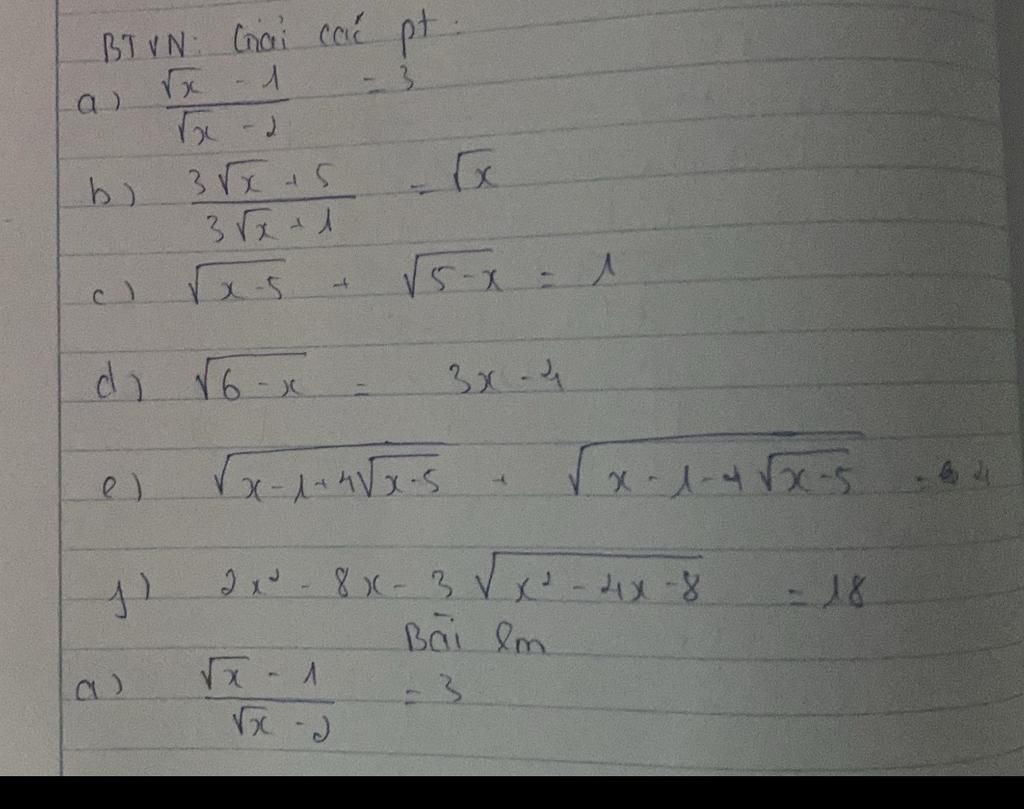 BTVN: Giải các pt:
a) (√x - 1)/(√x - 2) = 3
b) (3√x + 5)/(3√x + 1) = √x
c) √(x-5) + √(5-x) = 1
d) √(6-x) = 3x-4
e) √(x-1+4√(x-5)) + √(x-1-4√(x-5)) = 4
f) 2x² - 8x - 3√(x² - 4x - 8) = 18
Bài lm
a) (√x - 1)/(√x - 2) = 3